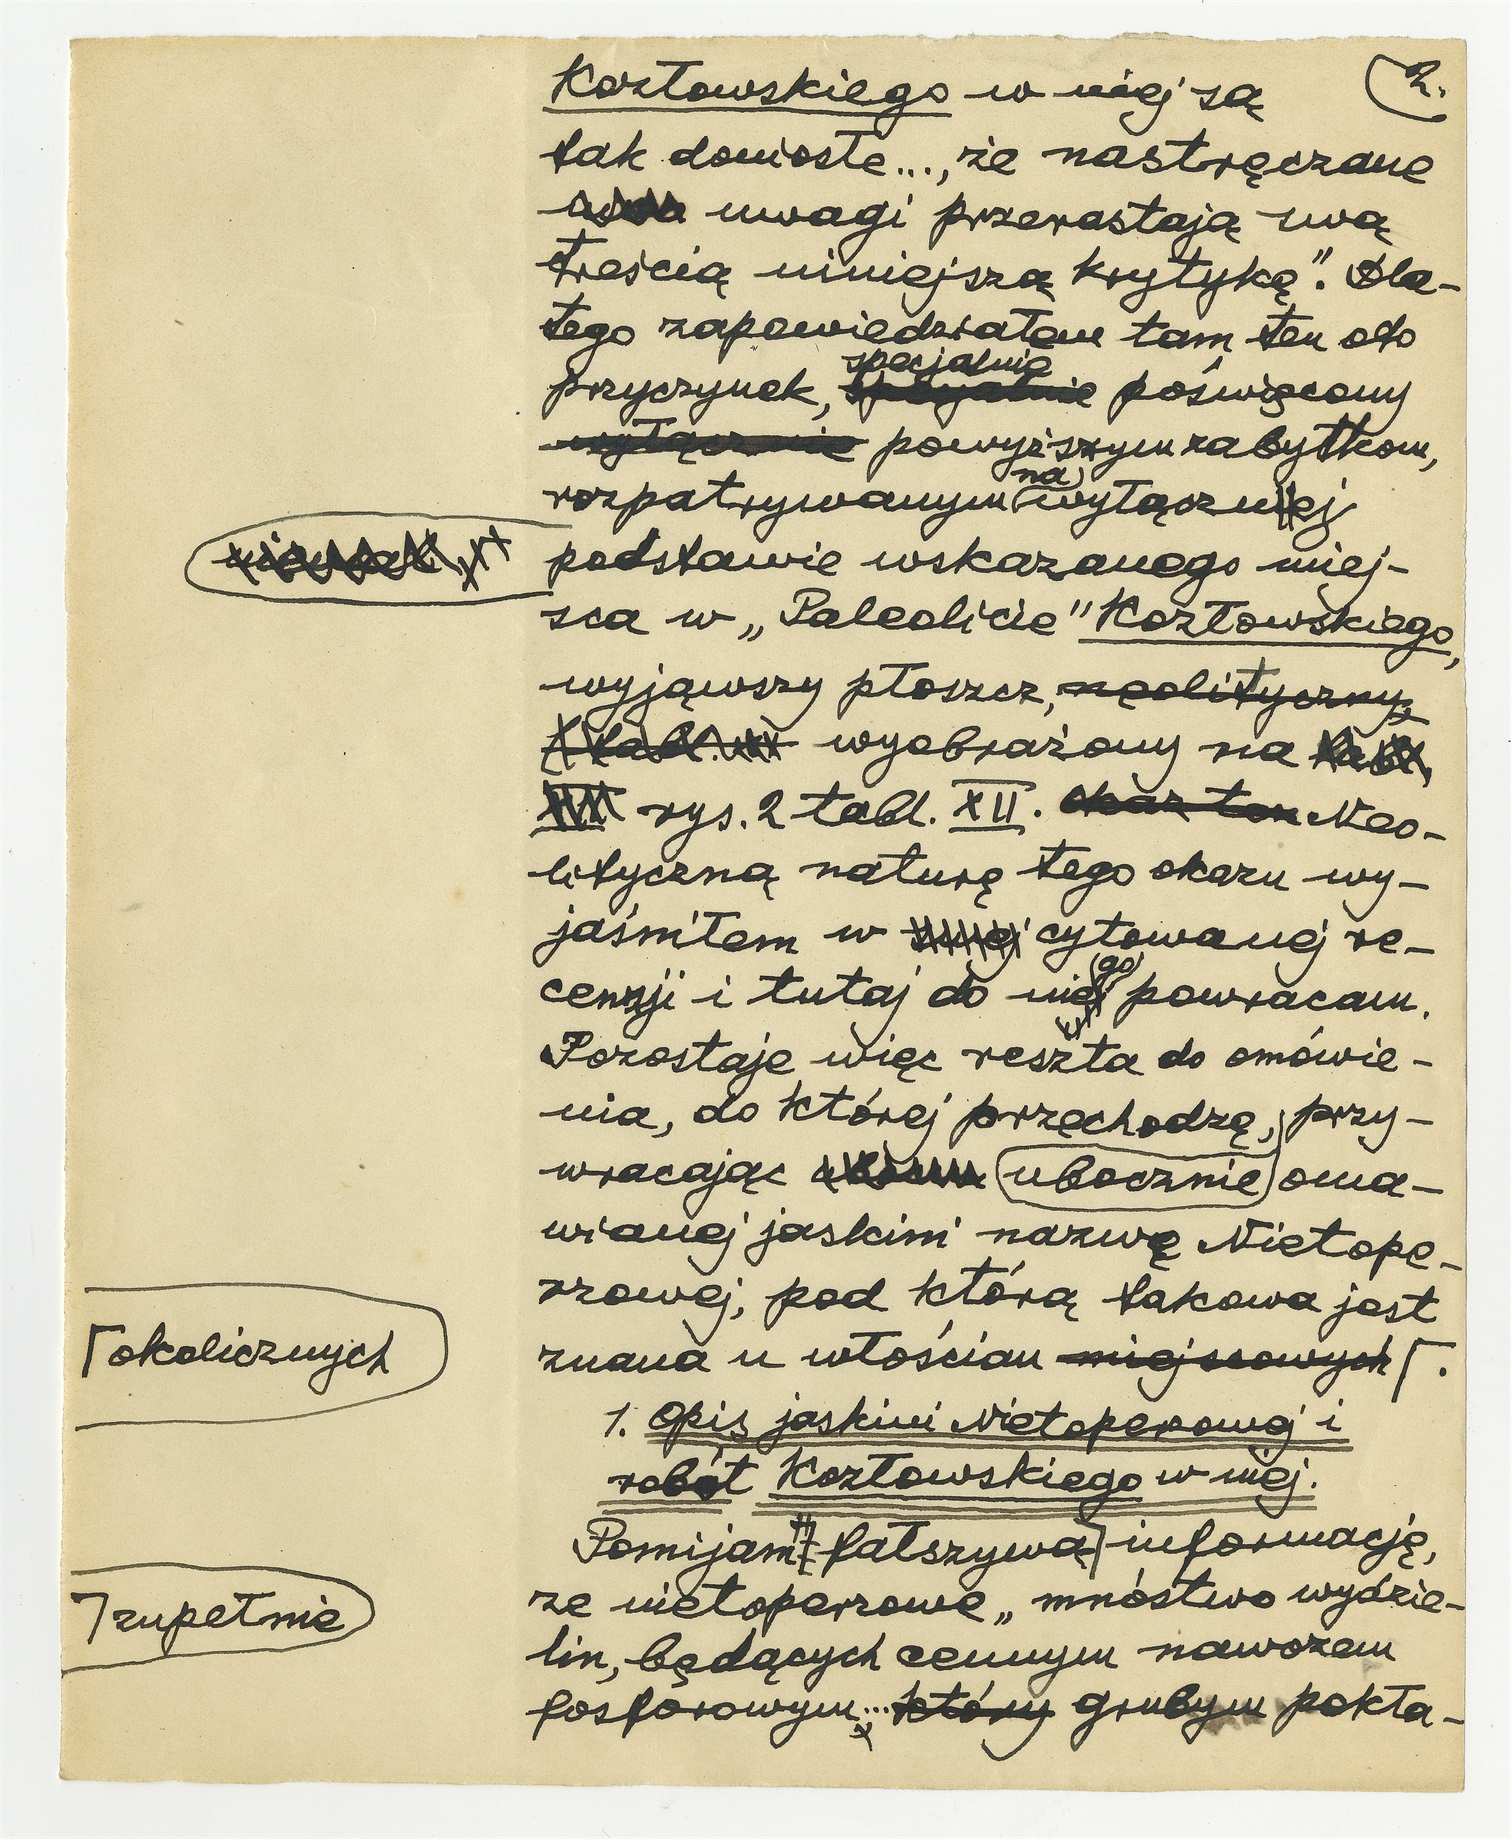 2.
Kozłowskiego w niej są
tak doniosłe..., że nastręczane
uwagi przerastają swą
treścią niniejszą krytykę". Dla-
tego zapowiedziałem tam ten oto
specjalnie
przyczynek, specyalnie poświęcony
wyłącznie powyższym zabytkom,
na
rozpatrywanym wyłącznej
podstawie wskazanego miej-
sca w „Paleolicie" Kozłowskiego,
wyjąwszy płoszcz, neolityczny,
(tabl. wyobrażony na tabl.
XII rys. 2 tabl. XII. okaz ten Neo-
lityczną naturę tego okazu wy-
jaśniłem w cytowanej re-
go
cenzji i tutaj do niej powracam.
Pozostaje więc reszta do omówie-
nia, do której przechodzę, przy-
wracając ubocznie oma-
wianej jaskini nazwę Nietope-
rzowej, pod którą takowa jest
znana u włościan miejscowych ⌈.
⌈okolicznych
1. Opis jaskini Nietoperzowej i
robót Kozłowskiego w niej.
Pomijam fałszywą informację,
⌉zupełnie
że nietoperzowe „mnóstwo wydzie-
lin, będących cennym nawozem
fosforowym... który grubym pokła-